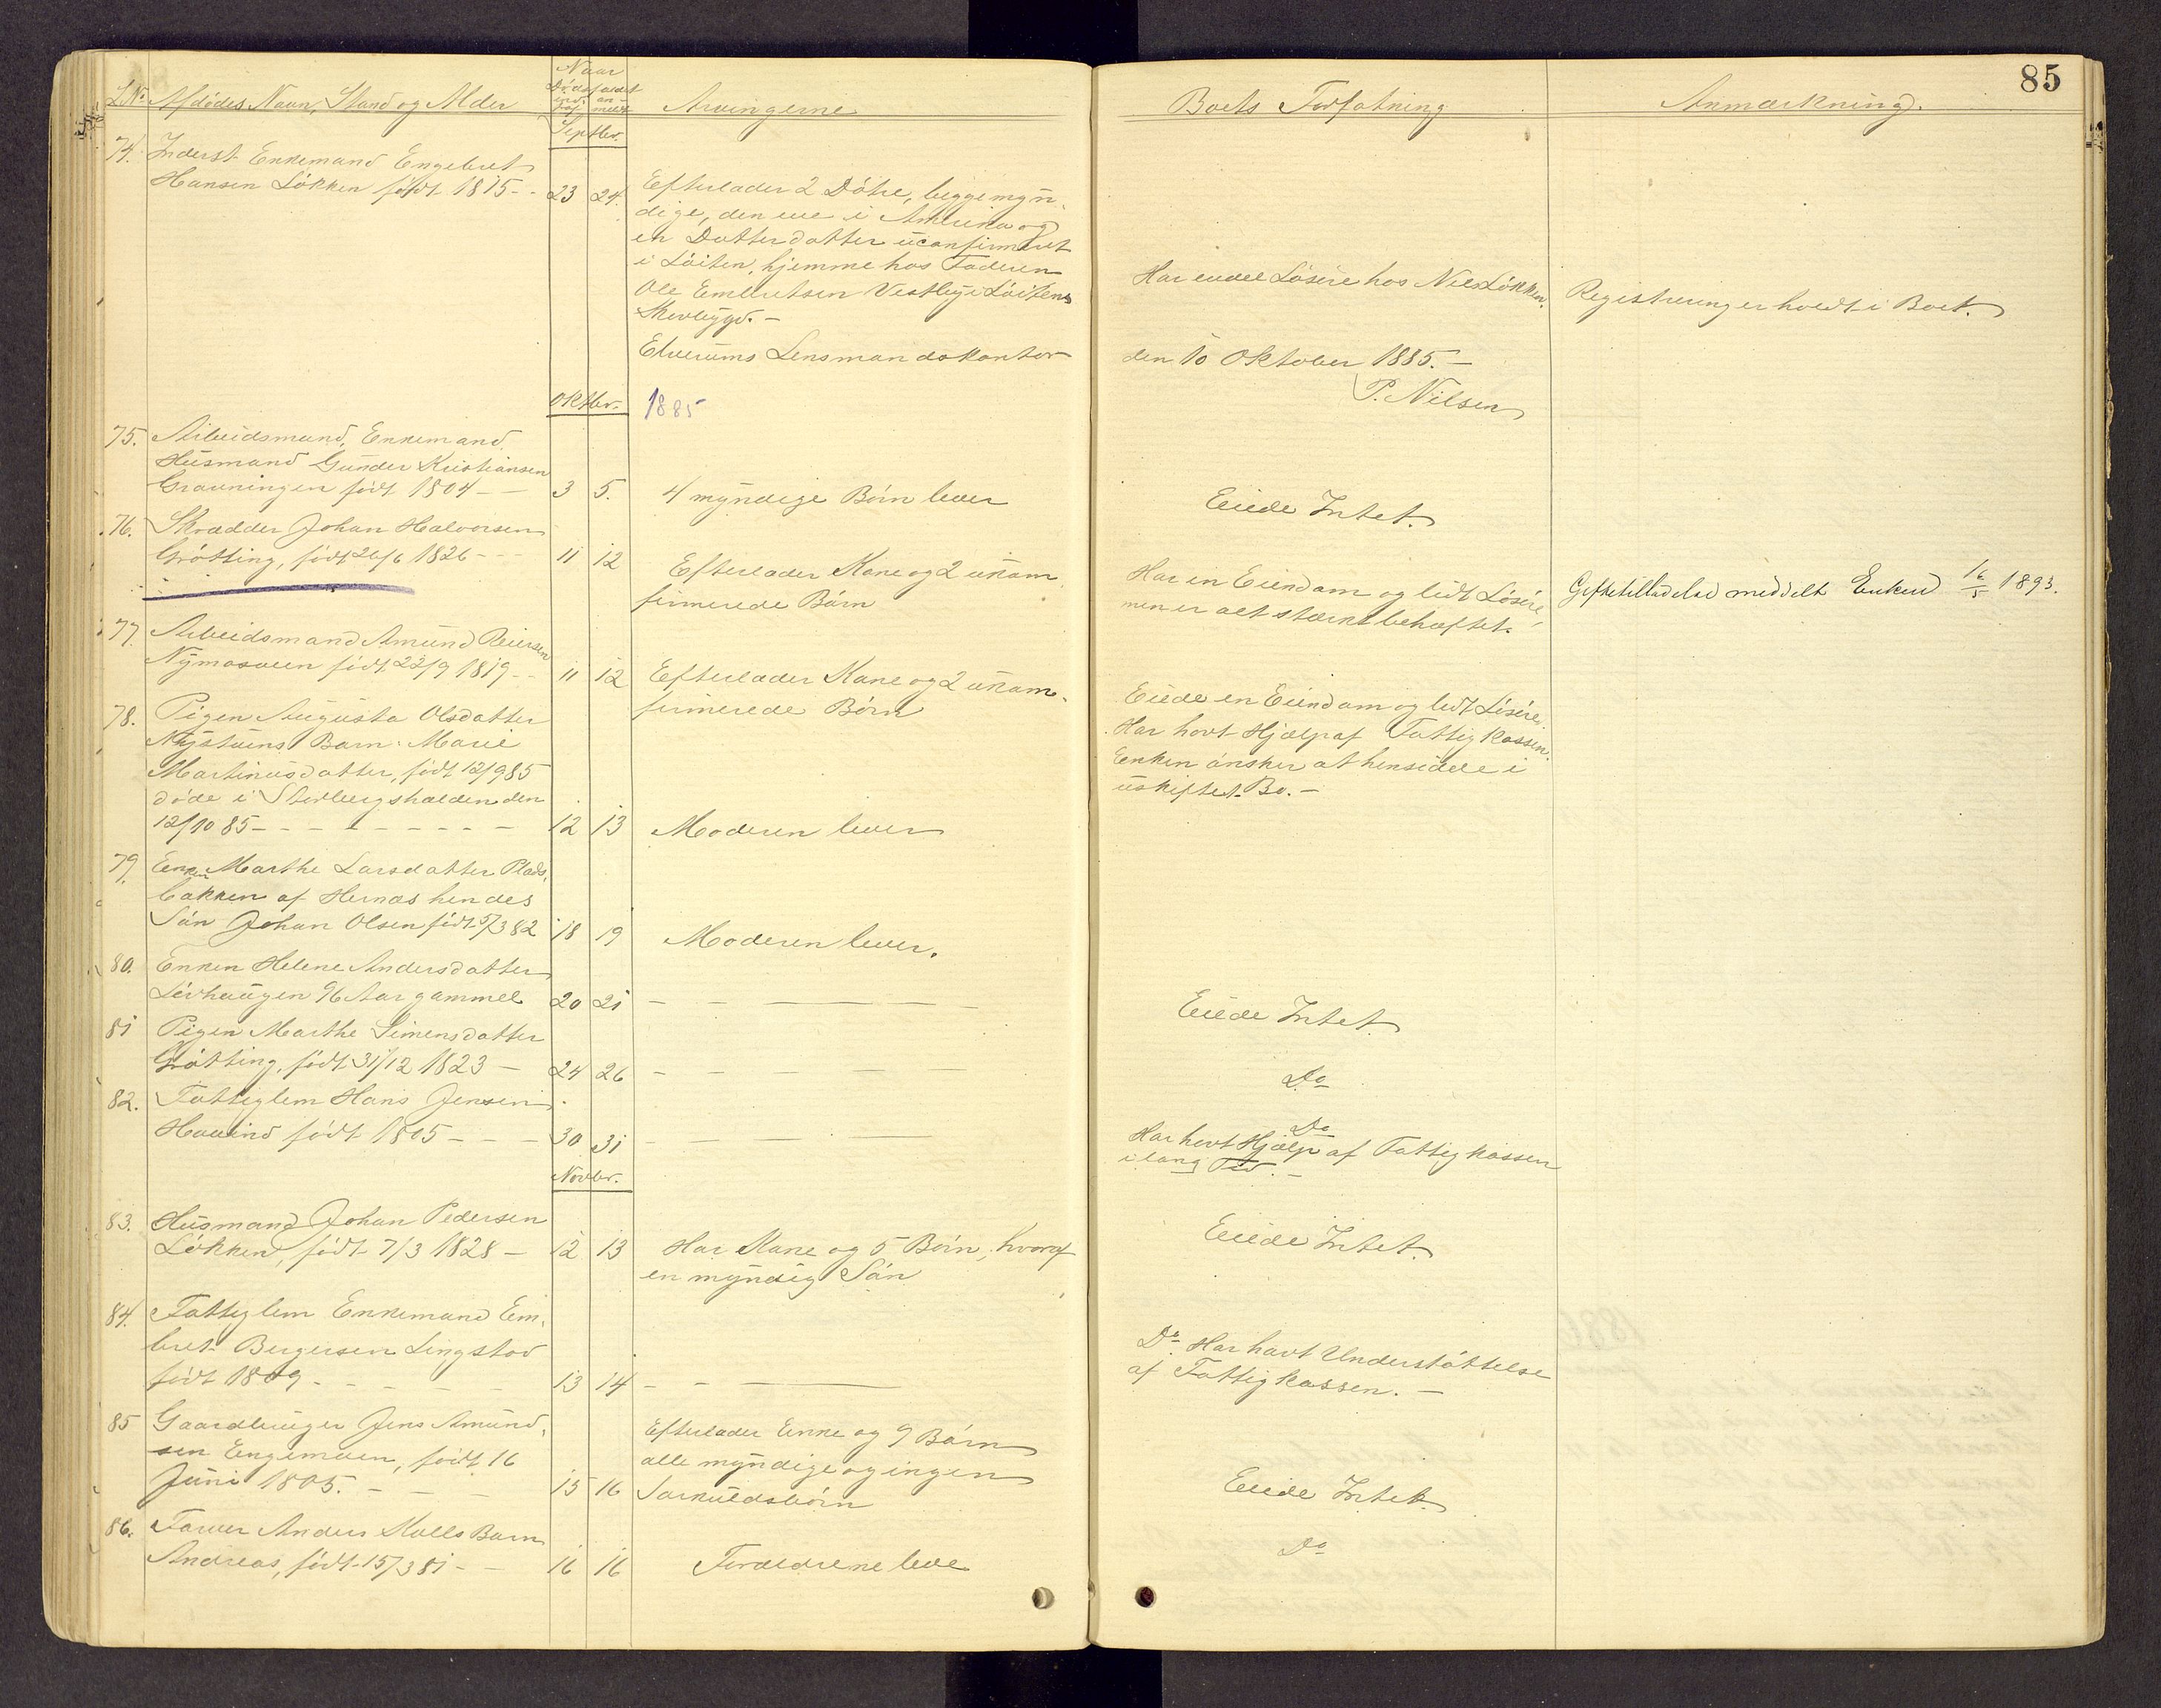 85
L.No. Afdødes Navn, Stand og Alder
Naar
Dødsfaldet
indtraf
anmeldt
Arvingerne
Boets Forfatning
Anmærkning.
Septbr.
74. Inderst Enkemand Engebret
Hansen Løkken født 1815 - - 23 24.
Efterlader 2 Døtre, begge myn-
dige, den ene i Amerika og
en Datterdatter uconfirmeret
i Løiten, hjemme hos Faderen
Ole Embretsen Vestby i Løitens
Skovbygd. -
Har endel Løsøre hos Nils Løkken.
Registrering er holdt i Boet.
Elverums Lensmandskontor den 10 Oktober 1885. -
P. Nilsen
Oktbr. 1885
75. Arbeidsmand, Enkemand
Husmand Gunder Kristiansen
Gravningen født 1804 - - 3 5. 4 myndige Børn lever
Eiede Intet.
76. Skrædder Johan Halvorsen
Grøtting, født 26/6 1826 - - - 11 12
Efterlader Kone og 2 ukon-
firmerede Børn
Har en Eiendom og lidt Løsøre,
men er alt stærkt behæftet.
Giftetilladelse meddelt Enken 16/5 1893.
77. Arbeidsmand Amund Reiersen
Nymosveen født 22/9 1819 - - 11 12
Efterlader Kone og 2 ukon-
firmerede Børn
Eiede en Eiendom og lidt Løsøre.
Har havt Hjælp af Fattigkassen.
Enken ønsker at hensidde i
uskiftet Bo. -
78. Pigen Augusta Olsdatter
Nystuens Barn: Marie
Martinusdatter, født 12/9 85
døde i Storbergshalden den
12/10 85 - - - - - - - - - 12 13 Moderen lever
79. Enken Marthe Larsdatter Plads-
bakken af Hernæs hendes
Søn Johan Olsen født 5/3 82 18 19 Moderen lever.
80. Enken Helene Andersdatter
Løvhaugen 96 Aar gammel 20 21 - - - - -
Eiede Intet
81 Pigen Marthe Simensdatter
Grøtting, født 31/12 1823 - 24 26 - - - - -
Do
82. Fattiglem Hans Jensen
Hovind født 1805 - - - 30 31 - - - - -
Do
Har havt Hjælp af Fattigkassen
i lang Tid. -
Novbr.
83. Husmand Johan Pedersen
Løkken, født 7/3 1828 - 12 13 Har Kone og 5 Børn, hvoraf
en myndig Søn
Eiede Intet.
84. Fattiglem Enkemand Em-
bret Bergersen Lingstad
født 1809 - - - - - 13 14 - - -
Do. Har havt Understøttelse
af Fattigkassen. -
85 Gaardbruger Jens Amund-
sen Engemoen, født 16
Juni 1805. - - - 15 16
Efterlader Enke og 9 Børn
alle myndige og ingen
Særkuldsbørn
Eiede Intet.
86. Farver Anders Kolls Barn
Andreas, født 15/3 81 - - 16 16 Forældrene leve
Do